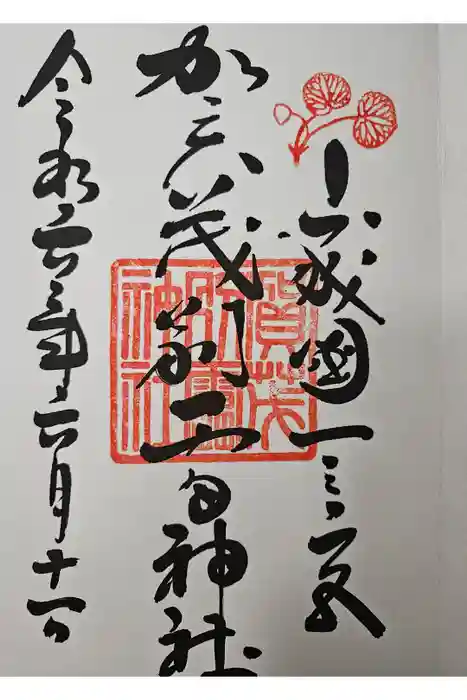 山城國一之宮
賀茂別雷神社
令和六年六月十一日
賀茂
別雷
神社